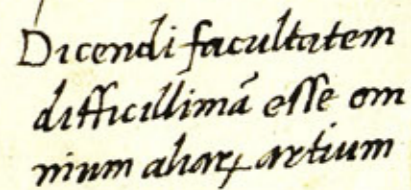 Dicendi facultatem
difficillimā esse om
nium aliaꝝ artium